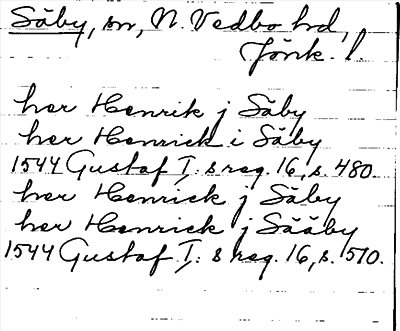 Säby, sn, N. Vedbo hd,
Jönk. l.
her Henrik j Säby
her Henrick i Säby
1544 Gustaf I:s reg. 16, s. 480.
her Henrick j Säby
her Henrick j Sääby
1544 Gustaf I:s reg. 16, s. 510.